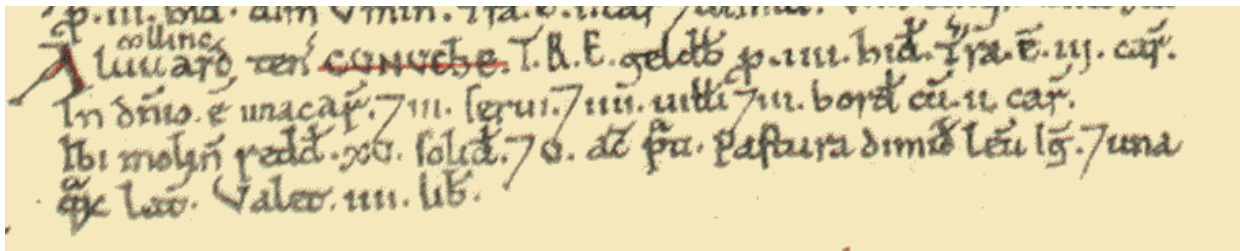 p.iii. hid.
collinc
Aluuard ten̄ CONVCHE. T.R.E. geldƀ p.iiii. hid̄. Tr̄a.ē.iij. car̄.
In dn̄io.ē una car̄. 7 iii. serui. 7 iiii. uilłi 7 iii. bord̄ cū.ii. car̄.
Ibi molin̄ redd̄.xv. solid̄. 7 v. ac̄ p̄ti. Pastura dimid̄ leū lḡ. 7 una
q̄ꝛ lat̄. Valet.iiii. liƀ.